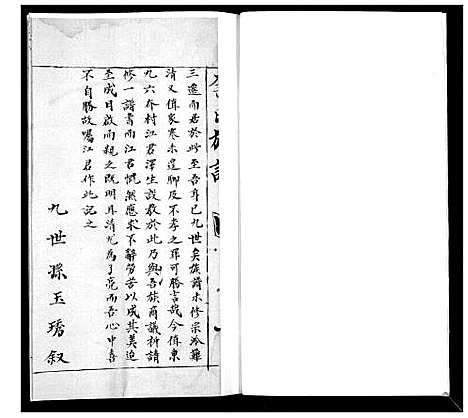 三遷而居於此至吾身已九世矣族譜未修宗派難
清又值家寒未遑聊及不孝之罪可勝言哉今值東
九六乔村江君澤生設教於此乃與吾族商議祈請
修一譜書而江君慨然應求不辭勞苦以成其美迨
至成日啟而視之既明且清尤為了亮而吾心中喜
不自勝故囑江君作此記之
九世孫玉璠叙
氏族譜